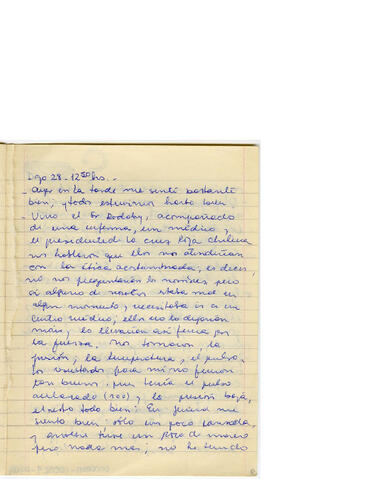 Dgo 28 - 12:50 hrs. -
- Ayer en la tarde me sentí bastante
bien; y todos estuvimos harto bien.
- Vino el Sr acompañado
de una enferma, un médico y
el presidente de la cruz roja chilena
nos hablaron que ellos nos atenderían
con la ética acostumbrada; es decir,
no nos preguntarían los nombres pero
si alguno de nosotros estaba mal en
algún momento y necesitaba ir a un
centro médico; ellos no lo dejarían
más, lo llevarían así fuera por
la fuerza. Nos tomaron la
presión; la temperatura, el pulso,
los resultados para mí no fueron
tan buenos, pues tenía el pulso
acelerado (100) y la presión baja,
el resto todo bien. En general me
siento bien; sólo un poco cansada,
y anoche tuve un poco de mareo
pero nada más; no he tenido